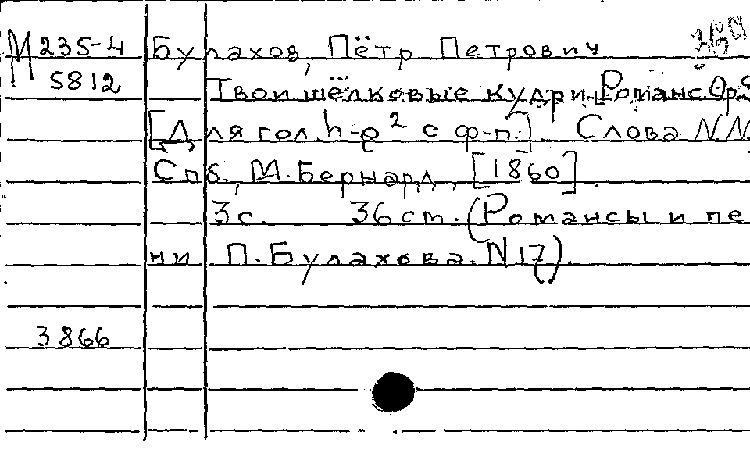 М 235-4 Булахов, Пётр Петрович
5812 Твои шёлковые кудри. Романс. Op.
[Для гол. h-e² с ф-п.]. Слова NN
Спб., М. Бернард, [1860].
3с. 36 cm. (Романсы и пе
ни П. Булахова. N 17).
3866